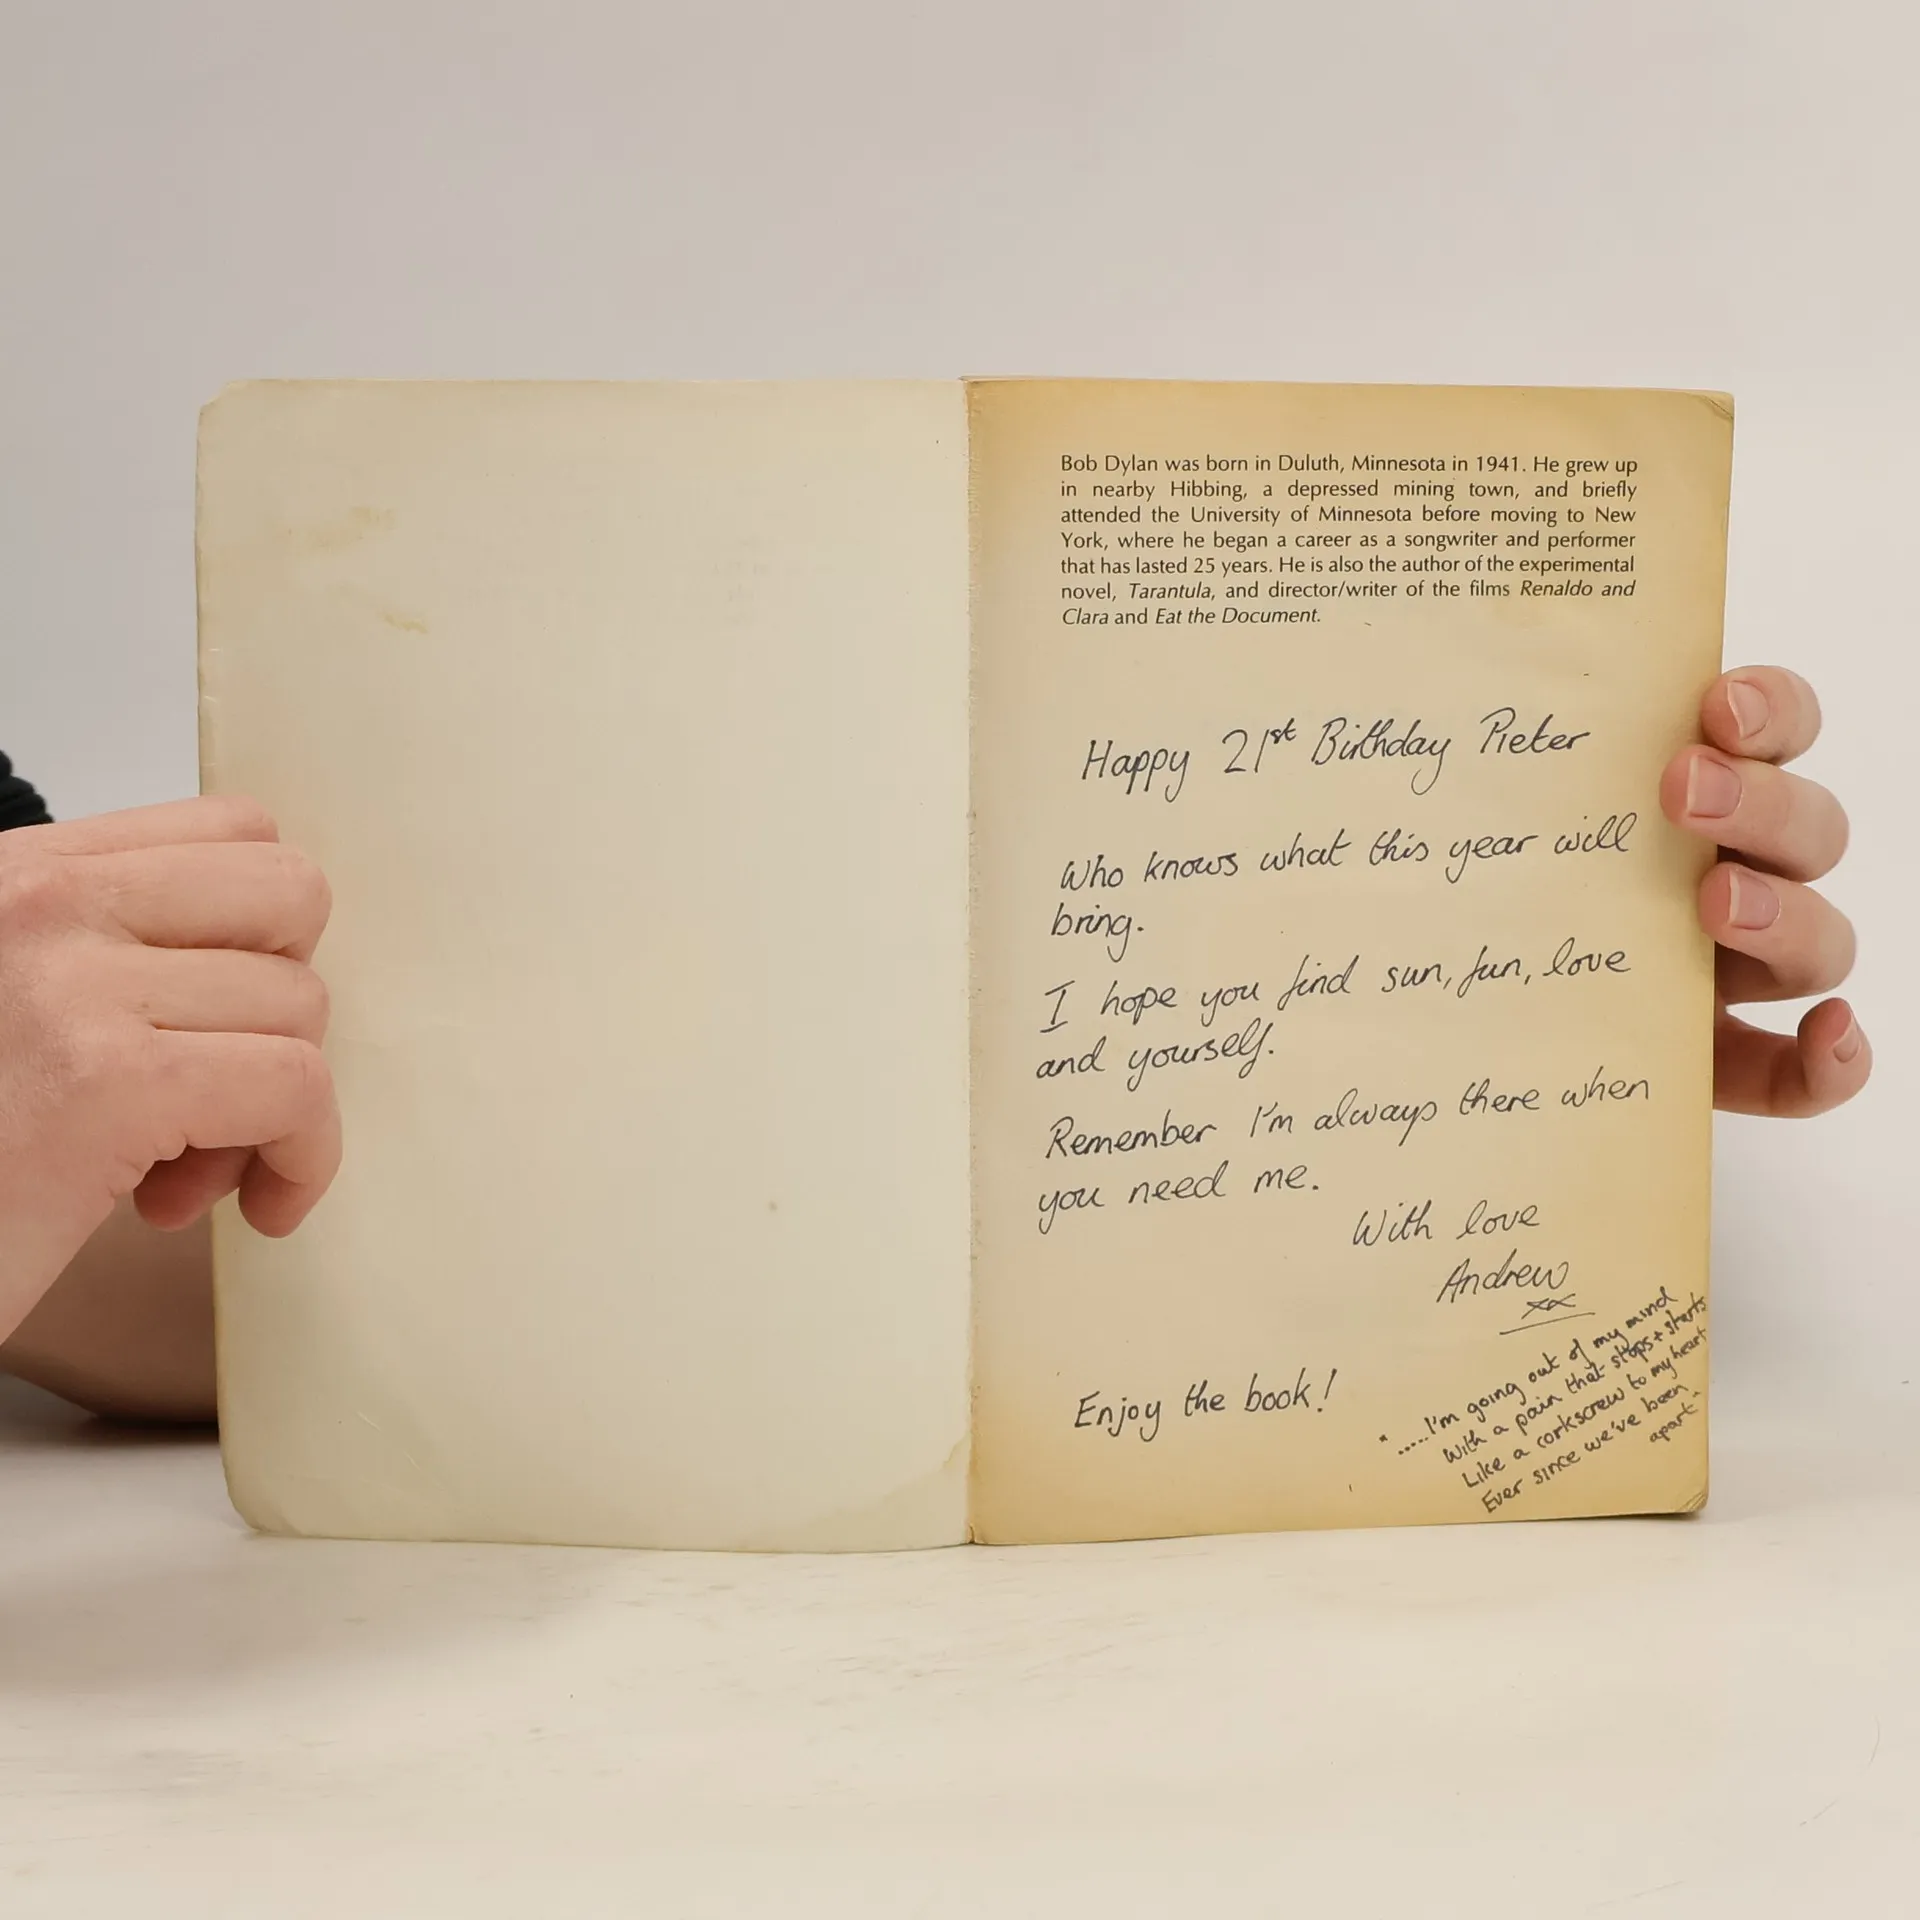 Bob Dylan was born in Duluth, Minnesota in 1941. He grew up
in nearby Hibbing, a depressed mining town, and briefly
attended the University of Minnesota before moving to New
York, where he began a career as a songwriter and performer
that has lasted 25 years. He is also the author of the experimental
novel, Tarantula, and director/writer of the films Renaldo and
Clara and Eat the Document.
Happy 21st Birthday Pieter
Who knows what this year will
bring.
I hope you find sun, fun, love
and yourself.
Remember I'm always there when
you need me.
With love
Andrew
xx
Enjoy the book!
".....I'm going out of my mind
With a pain that stops + starts
Like a corkscrew to my heart
Ever since we've been
apart"